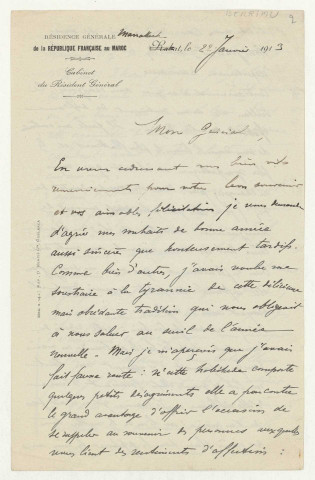 RÉSIDENCE GÉNÉRALE
de la RÉPUBLIQUE FRANÇAISE au MAROC
Cabinet
du Résident Général
Marrakech
Rabat, le 2 Janvier 1913
2
Mon Général,
En vous adressant mes bien vifs
remerciements pour votre bon souvenir
et vos aimables félicitations je vous demande
d'agréer mes souhaits de bonne année
aussi sincères que honteusement tardifs.
Comme bien d'autres, j'avais voulu me
soustraire à la tyrannie de cette délicieuse
mais obsédante tradition qui nous obligeait
à nous saluer au seuil de l'année
nouvelle. Mais je m'aperçois que j'avais
fait fausse route : si cette habitude comporte
quelques petits désagréments elle a par contre
le grand avantage d'offrir l'occasion de
se rappeler au souvenir des personnes auxquelles
nous lient des sentiments d'affection :